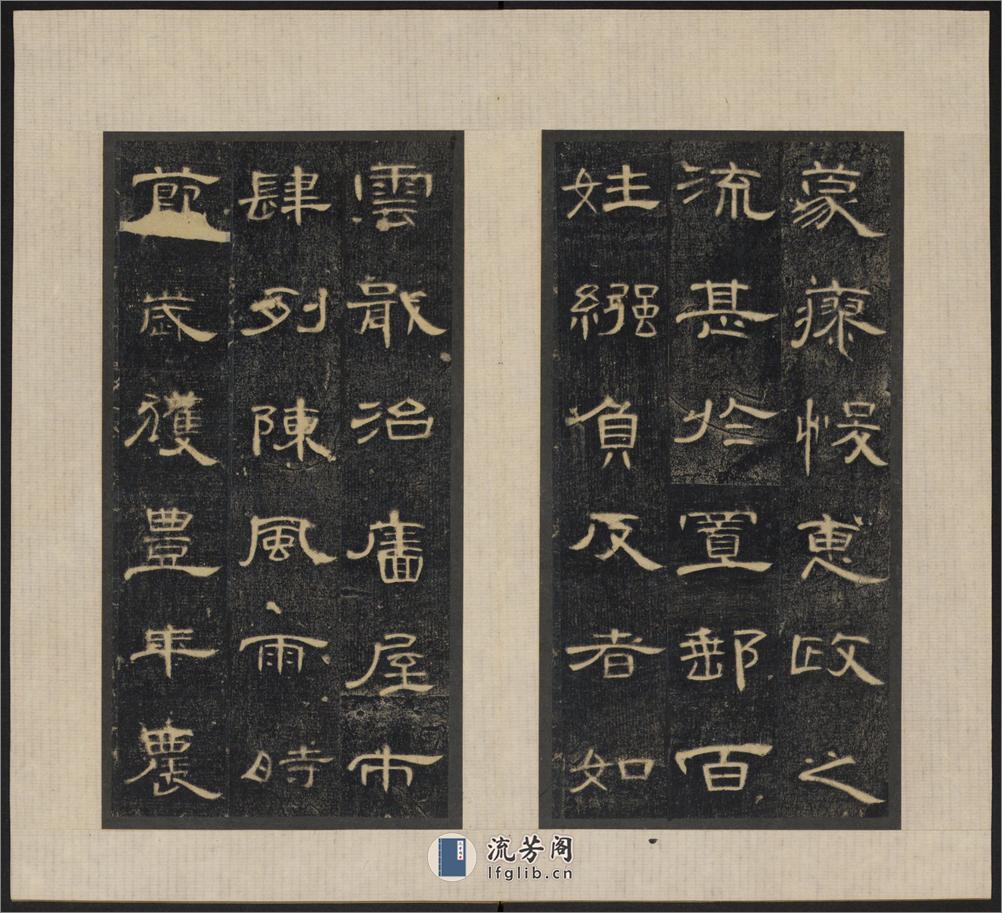 蒙瘳悮惠政之
流甚於置郵百
姓繈負反者如
雲戢治廧屋市
肆列陳風雨時
節歲獲豊年農
流芳阁
lfglib.cn